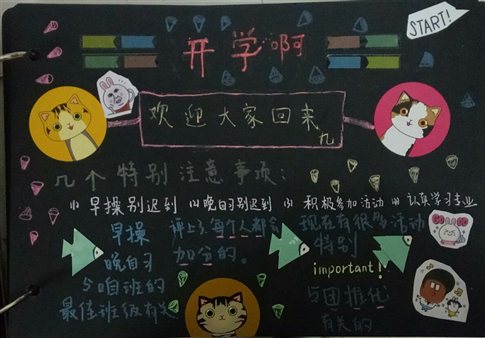 START!
开学啊
欢迎大家回来
九
几个特别注意事项:
(1) 早操别迟到 (2) 晚自习别迟到 (3) 积极参加活动 (4) 认真学习专业
早操
晚自习
与咱班的
最佳班级有关
评上了每个人都会
加分的。
现在有很多活动
特别
important!
与团推优
有关的